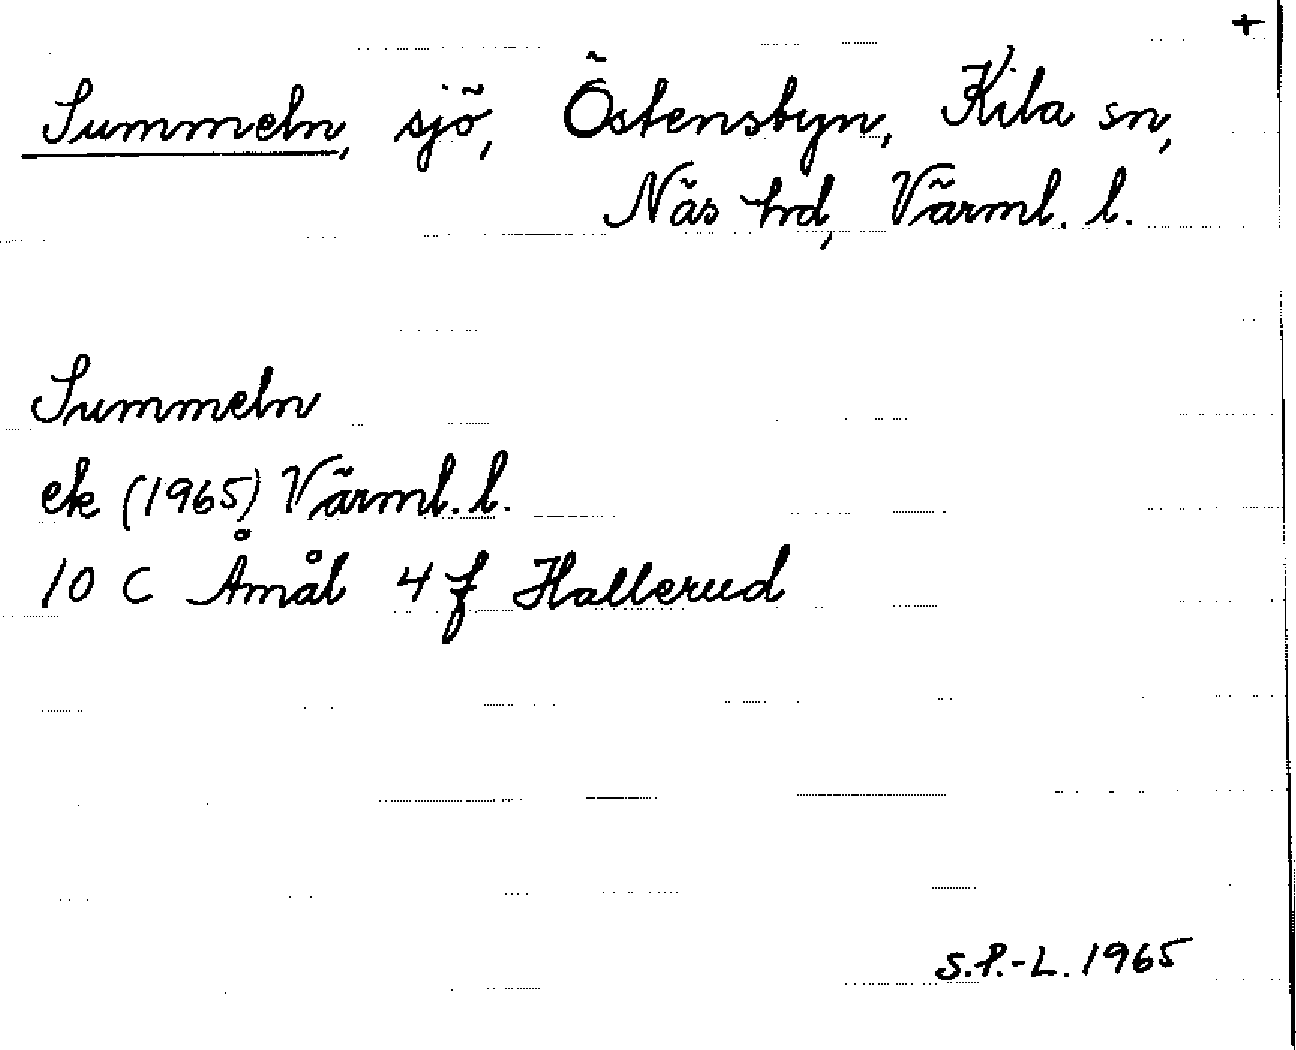 +
Summeln, sjö, Östensbyn, Kila sn,
Näs hd, Värml. l.
Summeln
ek (1965) Värml. l.
10 C Åmål 4 f Hallerud
S.P.-L. 1965